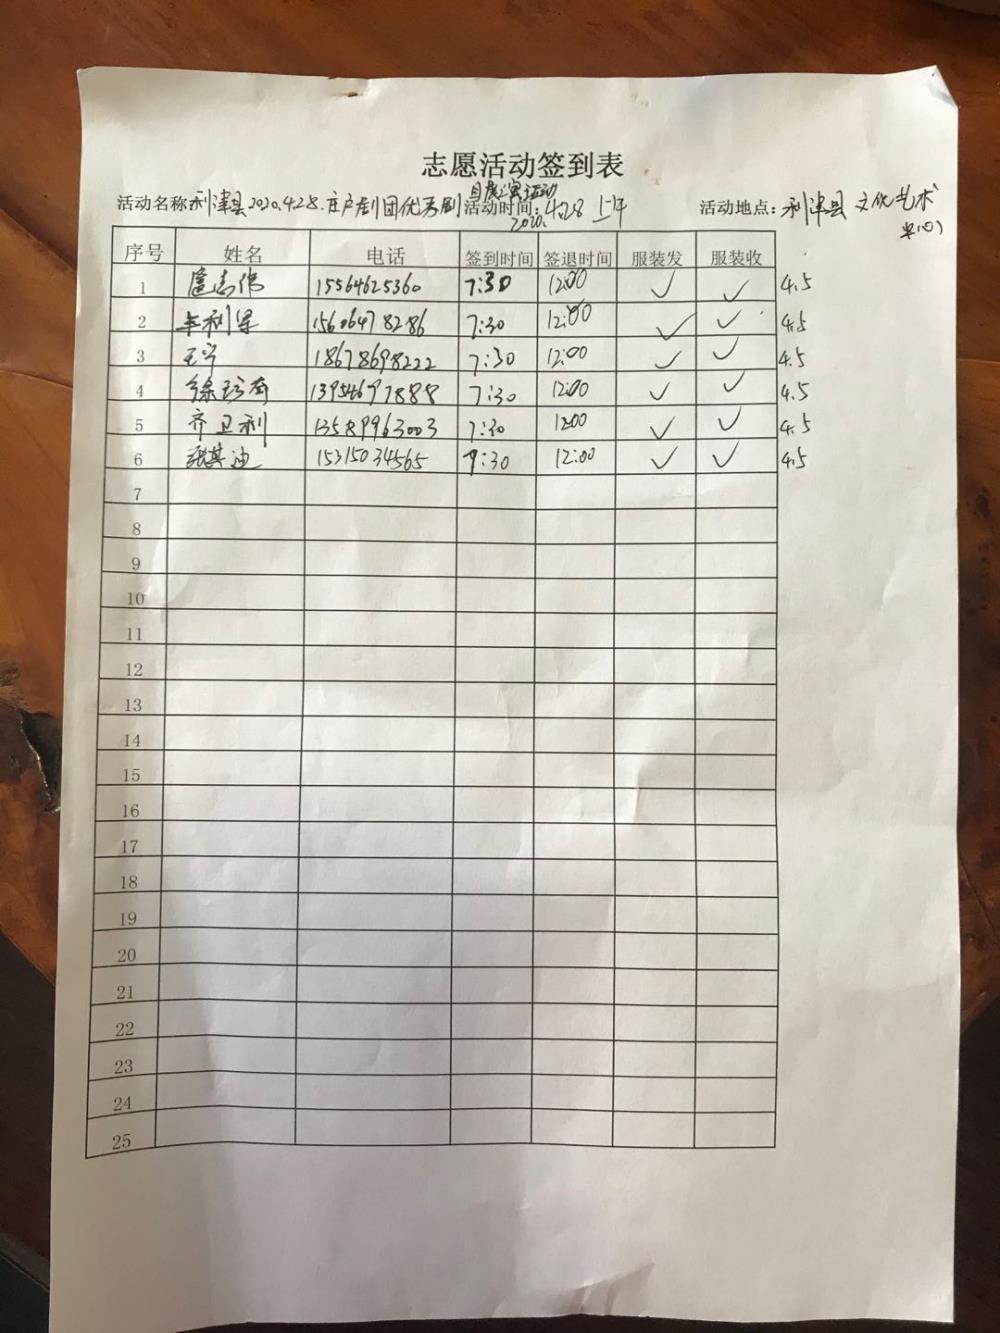 志愿活动签到表
活动名称 利津县2020.4.28.庄户剧团优秀剧目展演活动 活动时间:2020.4.28上午 活动地点:利津县文化艺术中心
序号 姓名 电话 签到时间 签退时间 服装发 服装收
1 扈志伟 15564625360 7:30 12:00 ✓ ✓ 4.5
2 15606478286 7:30 12:00 ✓ ✓ 4.5
3 王宁 18678698222 7:30 12:00 ✓ ✓ 4.5
4 13954697888 7:30 12:00 ✓ ✓ 4.5
5 齐卫利 13589963003 7:30 1200 ✓ ✓ 4.5
6 张其迪 15315034565 7:30 12:00 ✓ ✓ 4.5
7
8
9
10
11
12
13
14
15
16
17
18
19
20
21
22
23
24
25